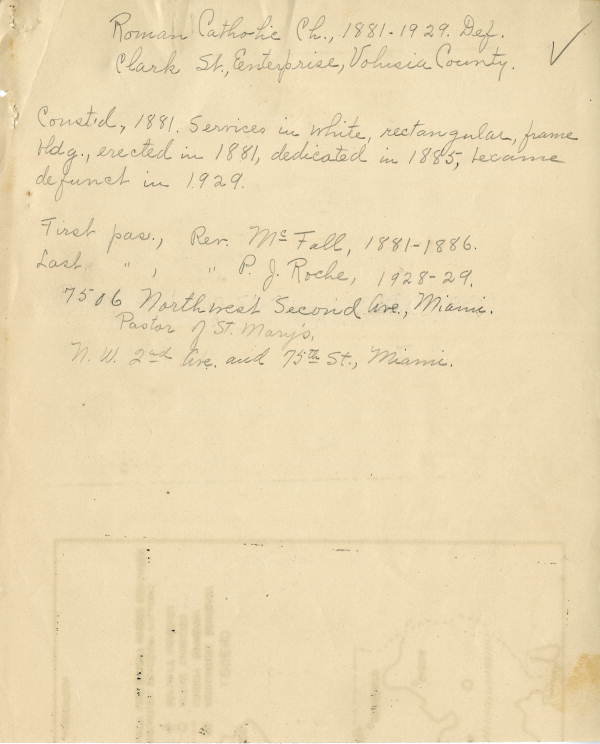 Roman Catholic Ch., 1881-1929. Def.
Clark St., Enterprise, Volusia County.
Const'd, 1881. Services in white, rectangular, frame
bldg., erected in 1881, dedicated in 1885, became
defunct in 1929.
First pas., Rev. McFall, 1881-1886.
Last " , " P. J. Roche, 1928-29.
7506 Northwest Second Ave., Miami.
Pastor of St. Mary's,
N. W. 2nd Ave. and 75th St., Miami.